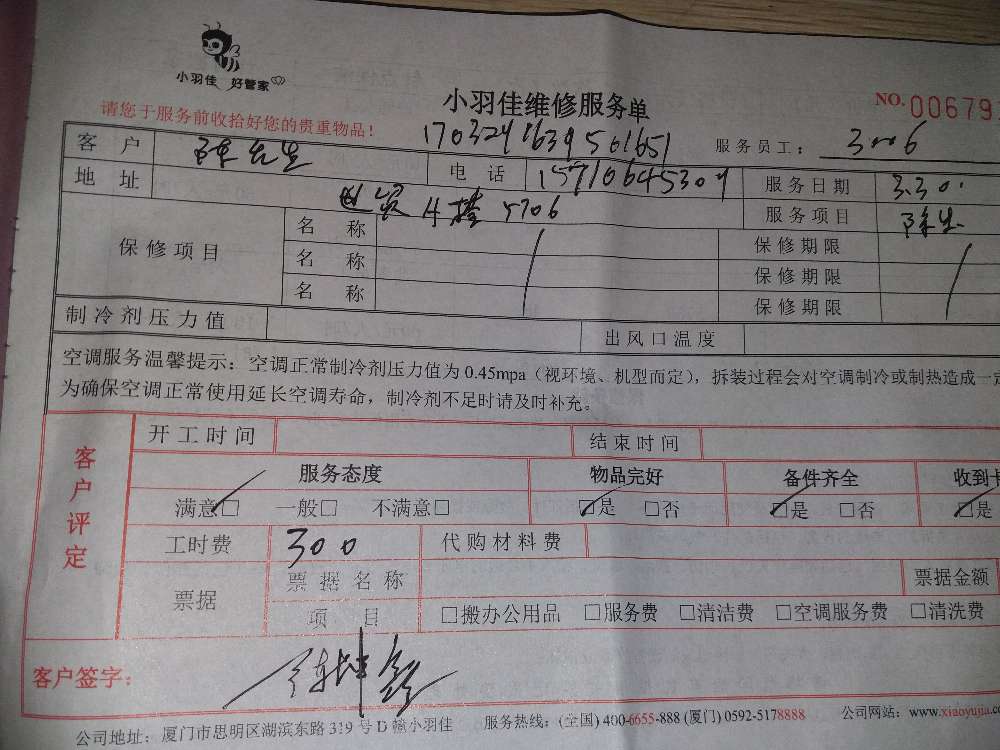 小羽佳 好管家
小羽佳维修服务单
NO. 00679
请您于服务前收拾好您的贵重物品！
1703241639561651
服务员工： 3006
客户 陈先生 电话 15710645309 服务日期 3.30.
地址 世贸A搭5706 服务项目
保修项目 名称 保修期限
名称 保修期限
名称 保修期限
制冷剂压力值 出风口温度
空调服务温馨提示：空调正常制冷剂压力值为0.45mpa（视环境、机型而定），拆装过程会对空调制冷或制热造成一定
为确保空调正常使用延长空调寿命，制冷剂不足时请及时补充。
客户评定
开工时间 结束时间
服务态度 物品完好 备件齐全 收到卡
满意□ 一般□ 不满意□ □是 □否 □是 □否 □是
工时费 300 代购材料费
票据 票据名称 票据金额
项目 □搬办公用品 □服务费 □清洁费 □空调服务费 □清洗费
客户签字：
公司地址：厦门市思明区湖滨东路319号D幢小羽佳 服务热线：(全国) 400-6655-888 (厦门) 0592-5178888 公司网站：www.xiaoyujia.co